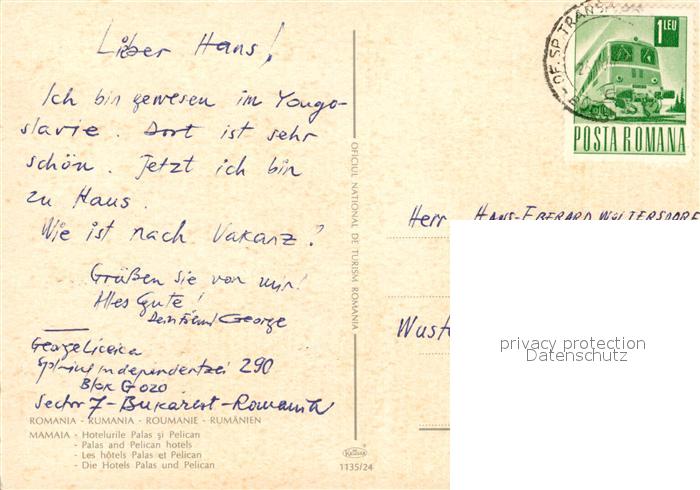 Lieber Hans!
Ich bin gewesen im Yougo-
slavie. Dort ist sehr
schön. Jetzt ich bin
zu Haus.
Wie ist nach Vakanz?
Grüßen sie von mir!
Alles Gute!
Dein Freund George
George Liceica
Splaiul Independentzei 290
Blok G 020
Sector 7 - Bukarest - Romanih
ROMANIA - RUMANIA - ROUMANIE - RUMÄNIEN
MAMAIA - Hotelurile Palas şi Pelican
- Palas and Pelican hotels
- Les hôtels Palas et Pelican
- Die Hotels Palas und Pelican
OFICIUL NATIONAL DE TURISM ROMANIA
1135/24
1 LEU
POSTA ROMANA
OF. SP. TRANS
Herr HANS-EBERARD WOLTERSDORF
Wust
privacy protection
Datenschutz